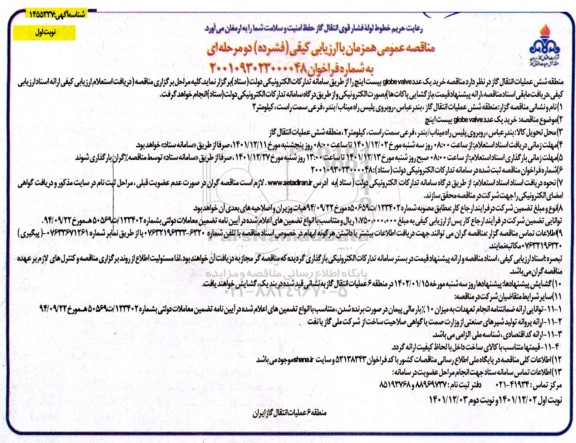 شناسه آگهی: ۱۴۵۵۳۳۷
نوبت اول
رعایت حریم خطوط لوله فشار قوی انتقال گاز حفظ امنیت و سلامت شما را به ارمغان می‌آورد.
مناقصه عمومی همزمان با ارزیابی کیفی (فشرده) دو مرحله ای
به شماره فراخوان ۲۰۰۱۰۹۳۰۲۳۰۰۰۰۴۸
منطقه شش عملیات انتقال گاز در نظر دارد مناقصه خرید یک عدد globe valve بیست اینچ را از طریق سامانه تدارکات الکترونیکی دولت (ستاد) برگزار نماید. کلیه مراحل برگزاری مناقصه (دریافت استعلام ارزیابی کیفی ارائه اسناد ارزیابی
کیفی، دریافت مابقی اسناد مناقصه، ارائه پیشنهاد قیمت، بازگشایی پاکات ها) بصورت الکترونیکی و از طریق درگاه سامانه تدارکات الکترونیکی دولت (ستاد) انجام خواهد گرفت.
۱) نام و نشانی مناقصه گزار: منطقه شش عملیات انتقال گاز، بندرعباس، روبروی پلیس راه میناب/بندر، فرعی سمت راست، کیلومتر۲
۲) موضوع مناقصه: خرید یک عدد globe valve بیست اینچ
۳) محل تحویل کالا: بندرعباس، روبروی پلیس راه میناب/بندر، فرعی سمت راست، کیلومتر۲، منطقه شش عملیات انتقال گاز
۴) مهلت زمانی دریافت اسناد استعلام: از ساعت ۰۸:۰۰ روز سه شنبه مورخ ۱۴۰۱/۱۲/۰۲ تا ساعت ۰۸:۰۰ روز پنجشنبه مورخ ۱۴۰۱/۱۲/۱۱، صرفا از طریق «سامانه ستاد» خواهد بود.
۵) مهلت زمانی بارگذاری اسناد استعلام: از ساعت ۰۸:۰۰ صبح روز شنبه مورخ ۱۴۰۱/۱۲/۱۳ تا ساعت ۱۳:۰۰ روز شنبه مورخ ۱۴۰۱/۱۲/۲۷، صرفا از طریق «سامانه ستاد» توسط مناقصه گران بارگذاری شوند
۶) شماره فراخوان مناقصه ثبت شده در سامانه تدارکات الکترونیکی دولت (ستاد): ۲۰۰۱۰۹۳۰۲۳۰۰۰۰۴۸
۷) نحوه دریافت اسناد استعلام: از طریق درگاه سامانه تدارکات الکترونیکی دولت (ستاد) به آدرس www.setadiran.ir. لازم است مناقصه گران در صورت عدم عضویت قبلی، مراحل ثبت نام در سایت مذکور و دریافت گواهی
امضای الکترونیکی را جهت شرکت در مناقصه محقق سازند.
۸) نوع و مبلغ تضمین شرکت در فرایند ارجاع کار: مطابق مصوبه شماره ۱۲۳۴۰۲/ت۵۰۶۵۹ه مورخ ۹۴/۰۹/۲۲ هیات وزیران و اصلاحیه های بعدی آن خواهد بود.
توانایی تضمین شرکت در فرآیند ارجاع کار پس از ارزیابی کیفی به مبلغ ۱,۷۵۰,۰۰۰,۰۰۰ ریال و متناسب با انواع تضمین های اعلام شده در آیین نامه تضمین معاملات دولتی بشماره
۹) اطلاعات تماس مناقصه گزار: مناقصه گران می توانند جهت دریافت اطلاعات بیشتر یا داشتن هرگونه ابهام در خصوص اسناد مناقصه با تلفن شماره
مکاتبه نمایند.
تبصره: اسناد ارزیابی کیفی، اسناد مناقصه و ارائه پیشنهاد قیمت در بستر سامانه تدارکات الکترونیکی بارگذاری گردیده که مناقصه گر مجاز به دریافت آن خواهند بود. لذا مسئولیت اطلاع از روند برگزاری مناقصه و کنترل های لازم بر عهده
مناقصه گران می باشد.
۱۰) گشایش پیشنهادها: پیشنهادها روز سه شنبه مورخ ۱۴۰۲/۰۱/۱۵ در منطقه ۶ عملیات انتقال گاز به نشانی قید شده در بند یک، گشایش خواهند یافت.
۱۱) سایر شرایط متقاضیان شرکت در مناقصه:
۱-۱۱- توانایی ارائه ضمانتنامه انجام تعهدات به میزان ۱۰٪ بار مالی پیمان در صورت برنده شدن، متناسب با انواع تضمین های اعلام شده در آیین نامه تضمین معاملات دولتی بشماره ۱۲۳۴۰۲/ت۵۰۶۵۹ه مورخ ۹۴/۰۹/۲۲
۲-۱۱- ارائه پروانه تولید شیرهای صنعتی از وزارت صمت یا گواهی صلاحیت ساخت از شرکت ملی گاز یا نفت
۳-۱۱- ارائه کد اقتصادی، شناسه ملی الزامی می باشد.
۴-۱۱- قیمتها متناسب با کالای ساخت داخل با لحاظ کیفیت ارائه گردد.
۱۲) اطلاعات کلی مناقصه در پایگاه ملی اطلاع رسانی مناقصات کشور با کد فراخوان ۵۳۱۲۸۳۴۳ و سایت shana.ir موجود می باشد
۱۳) اطلاعات تماس سامانه ستاد جهت انجام مراحل عضویت در سامانه:
مرکز تماس: ۴۱۹۳۴-۰۲۱ دفتر ثبت نام: ۸۸۹۶۹۷۳۷ و ۸۵۱۹۳۷۶۸
نوبت اول ۱۴۰۱/۱۲/۰۲ و نوبت دوم ۱۴۰۱/۱۲/۰۳
منطقه ۶ عملیات انتقال گاز ایران